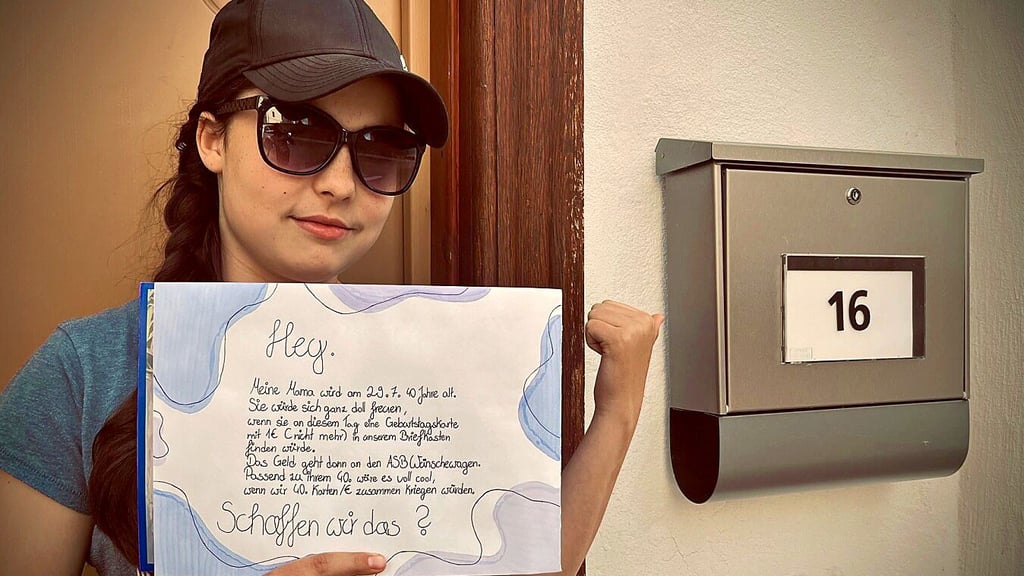 Hey.
Meine Mama wird am 29.7. 40 Jahre alt.
Sie würde sich ganz doll freuen,
wenn sie an diesem Tag eine Geburtstagskarte
mit 1€ (nicht mehr) in unserem Briefkasten
finden würde.
Das Geld geht dann an den ASB Wünschewagen.
Passend zu ihrem 40. wäre es voll cool,
wenn wir 40 Karten/€ zusammen kriegen würden.
Schaffen wir das?
16